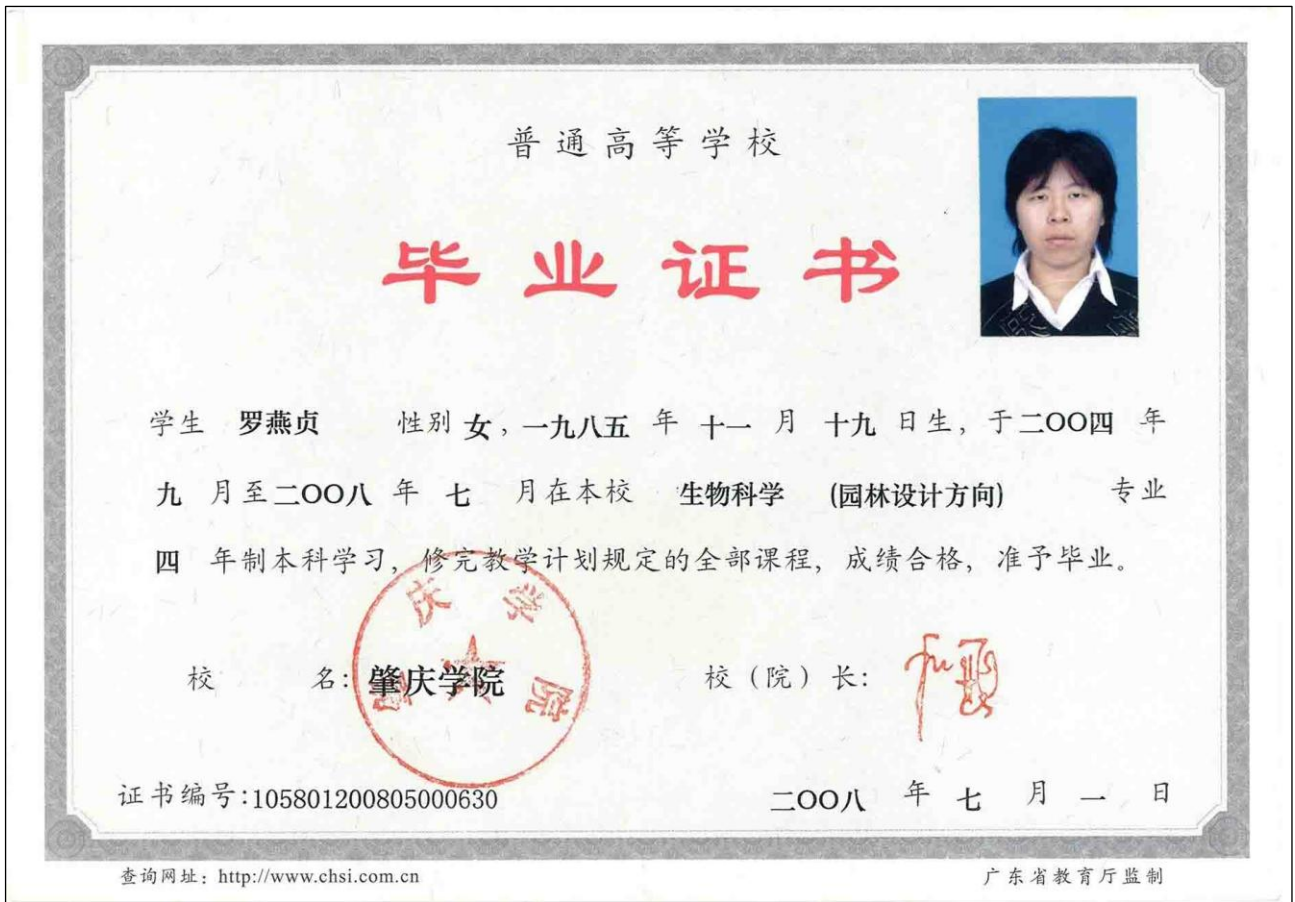 普通高等学校
毕业证书
学生 罗燕贞 性别 女，一九八五 年 十一 月 十九 日生，于二OO四 年
九 月至二OO八 年 七 月在本校 生物科学 (园林设计方向) 专业
四 年制本科学习，修完教学计划规定的全部课程，成绩合格，准予毕业。
庆学院
校 名：肇庆学院 校（院）长：
证书编号:105801200805000630 二OO八 年 七 月 一 日
查询网址：http://www.chsi.com.cn 广东省教育厅监制